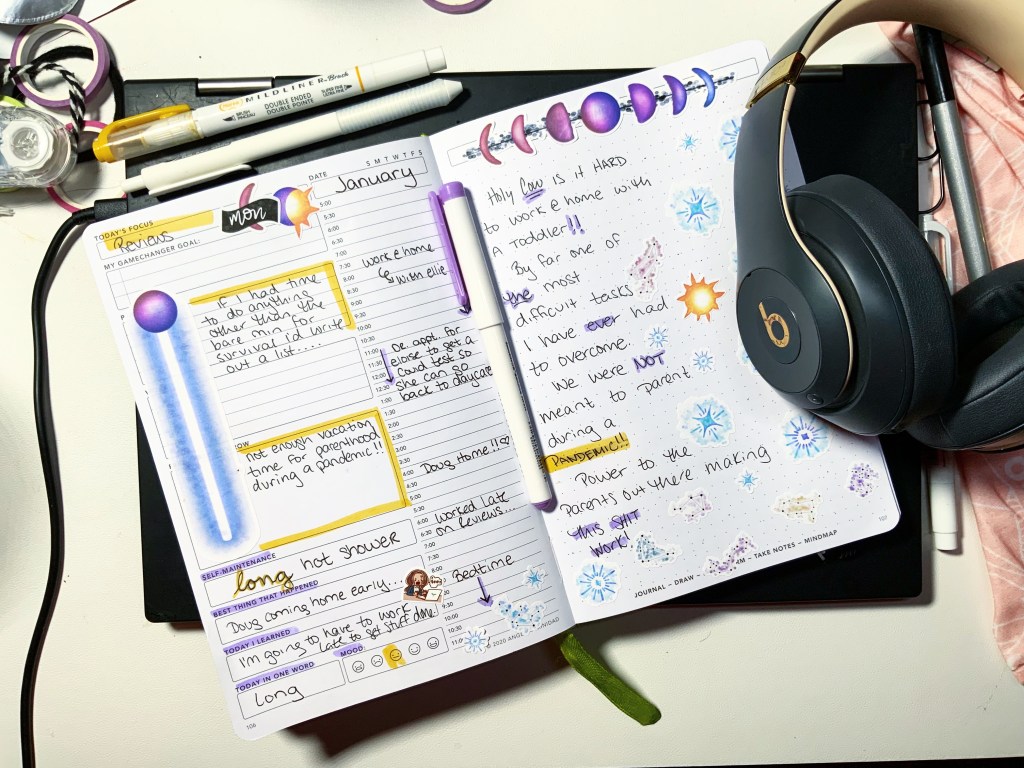 MILDLINER-Brush
DOUBLE ENDED
DOUBLE POINTE
BRUSH
PINCEAU
SUPER FINE
S M T W T F S
DATE
January
mon
TODAY'S FOCUS
Reviews
MY GAMECHANGER GOAL:
If I had time
to do anything
other than the
bare min for
survival i'd write
out a list....
not enough vacation
time for parenthood
during a pandemic!!
SELF-MAINTENANCE
long hot shower
BEST THING THAT HAPPENED
Doug coming home early...
TODAY I LEARNED
I'm going to have to work
late to get stuff done.
TODAY IN ONE WORD
Long
MOOD
106
5:00
6:00
7:00
7:30
work @ home
8:30
with ellie
9:00
9:30
10:00
11:00
Dr. appt. for
close to get a
12:00
Covid test so
12:30
she can go
1:00
back to daycare
1:30
2:00
2:30
3:00
3:30
4:00
Doug Home!!♡
4:30
5:00
6:00
worked late
6:30
on Reviews...
7:00
Bedtime
9:30
10:00
10:30
11:00
© 2020
Holy Cow is it HARD
to work @ home with
A Toddler!!
By far one of
the most
difficult tasks
I have ever had
to overcome.
We were NOT
meant to parent
during a
PANDEMIC!!
Power to the
Parents out there making
THIS SHIT
Work!
JOURNAL – DRAW – – TAKE NOTES – MINDMAP
107
b